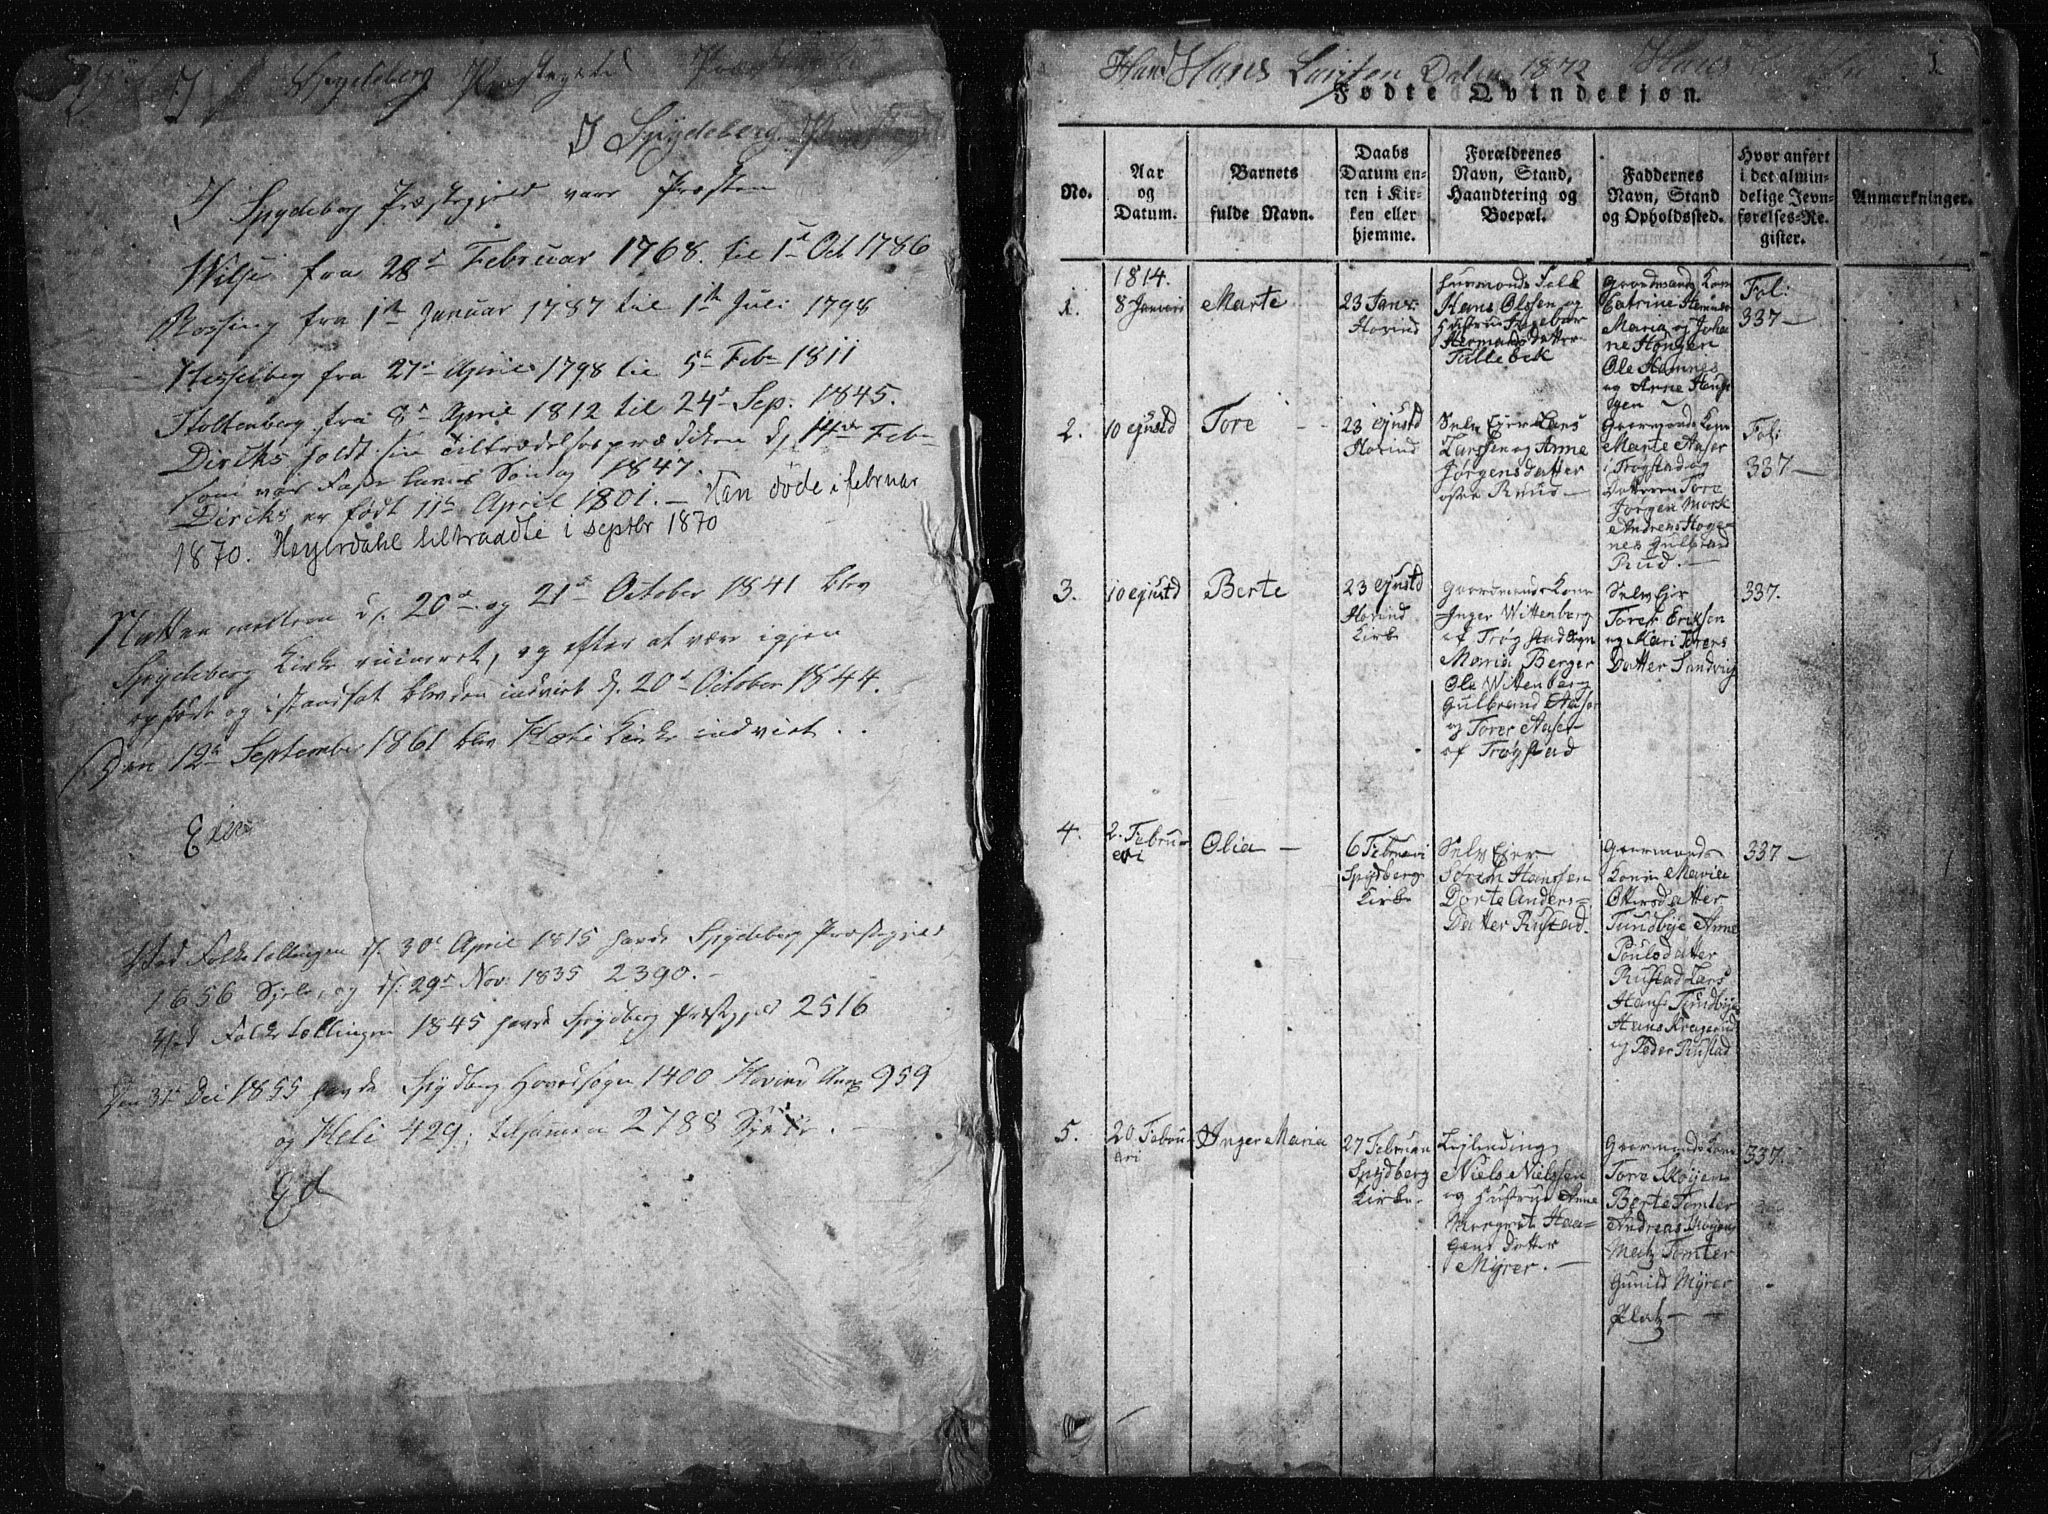 Spydeberg Præstegjeld
I Spydeberg
I Spydeberg Præstegjeld vare Præsten
Wilse fra 28de Februar 1768 til 1st Oct 1786
Rossing fra 1ste Januar 1787 til 1ste Juli 1798
Hesselberg fra 27de April 1798 til 5te Feb 1811
Stoltenberg fra 8de April 1812 til 24de Sep. 1845.
Diriks holdt sin Tiltrædelsesprædiken d. 14de Feb
som var Fastelavns Søndag 1847.
Diriks er født 11te April 1801. — Han døde i februar
1870. Heyerdahl tiltraadte i septbr 1870
Natten mellem d. 20de og 21de October 1841 blev
Spydeberg Kirke ruineret, og efter at være igjen
opført og istandsat blev den indviet d. 20de October 1844.
Den 12te September 1861 blev Heli Kirke indviet.
Ved Folketællingen d. 30te April 1815 havde Spydeberg Præstegjeld
1656 Sjele, og d. 29de Nov. 1835 2390. —
Ved Folketællingen 1845 havde Spydberg Præstegjeld 2516
Den 31te Dec 1855 havde Spydberg Hovedsogn 1400 Hovind Anx 959
og Heli 429, tilsammen 2788 Sjele. —
Ed
Hans Larsen Dalen 1872 Hans
1
Fødte Qvindekjøn.
No.
Aar
og
Datum.
Barnets
fulde Navn.
Daabs
Datum en-
ten i Kir-
ken eller
hjemme.
Forældrenes
Navn, Stand,
Haandtering og
Boepæl.
Faddernes
Navn, Stand
og Opholdssted.
Hvor anført
i det almin-
delige Jevn-
førelses-Re-
gister.
Anmærkninger.
1814.
1.
8 Januari
Marte —
23 Janr.
Hovind
Huusmands Folk
Hans Olssen og
Hustrue Ingebor
Hermansdatter
Tallebek
Gaardmands Kone
Catrine
Maria og Joha
ne Hongen
Ole Hamnes
og Anne Haug
gen —
Fol:
337 —
2.
10 ejustd
Tore — —
23 ejustd
Hovind
Selv Ejer Lars
Larssen og Anne
Jørgensdatter
østre Ruud —
Gaarmands Kone
Marte Aaser
i Trøgstad og
Datteren Tore
Jørgen Mørk
Andreas Hage
nes Gulbrand
Rud. —
Fol:
337 —
3.
10 ejustd
Berte
23 ejustd
Hovind
Kirke
Gaardmands Kone
Inger Wittenberg
af Trøgstad Sogn
Maria Berger
Ole Wittenberg
Gulbrand Aaser
og Torer Aaser
af Trøgstad
Selv Ejer
Torer Eriksen
og Mari Torers
Datter Sandvig
337.
4.
2. Febru-
ari
Olia —
6 Februari
Spydberg
Kirke
Selv Ejer
Søren Hanssen
Dorte Anders-
Datter Rustad.
Gaarmands
Konen Marie
Ottersdatter
Tundbye Anne
Poulsdatter
Rustad Lars
Hans Tundbye
Hans Kragerud
og Peder Rustad
337 —
5.
20 Febru-
ari
Inger Maria
27 Februari
Spydberg
Kirke.
Lejlending
Niels Nielssen
og Hustrue Anne
Margret Haa-
gens Datter
Myrer. —
Gaarmands Kone
Tore Skøyen
Berte Tomter
Andreas Skøyen
Matz Tomter
Gunild Myrer
Platz —
337.